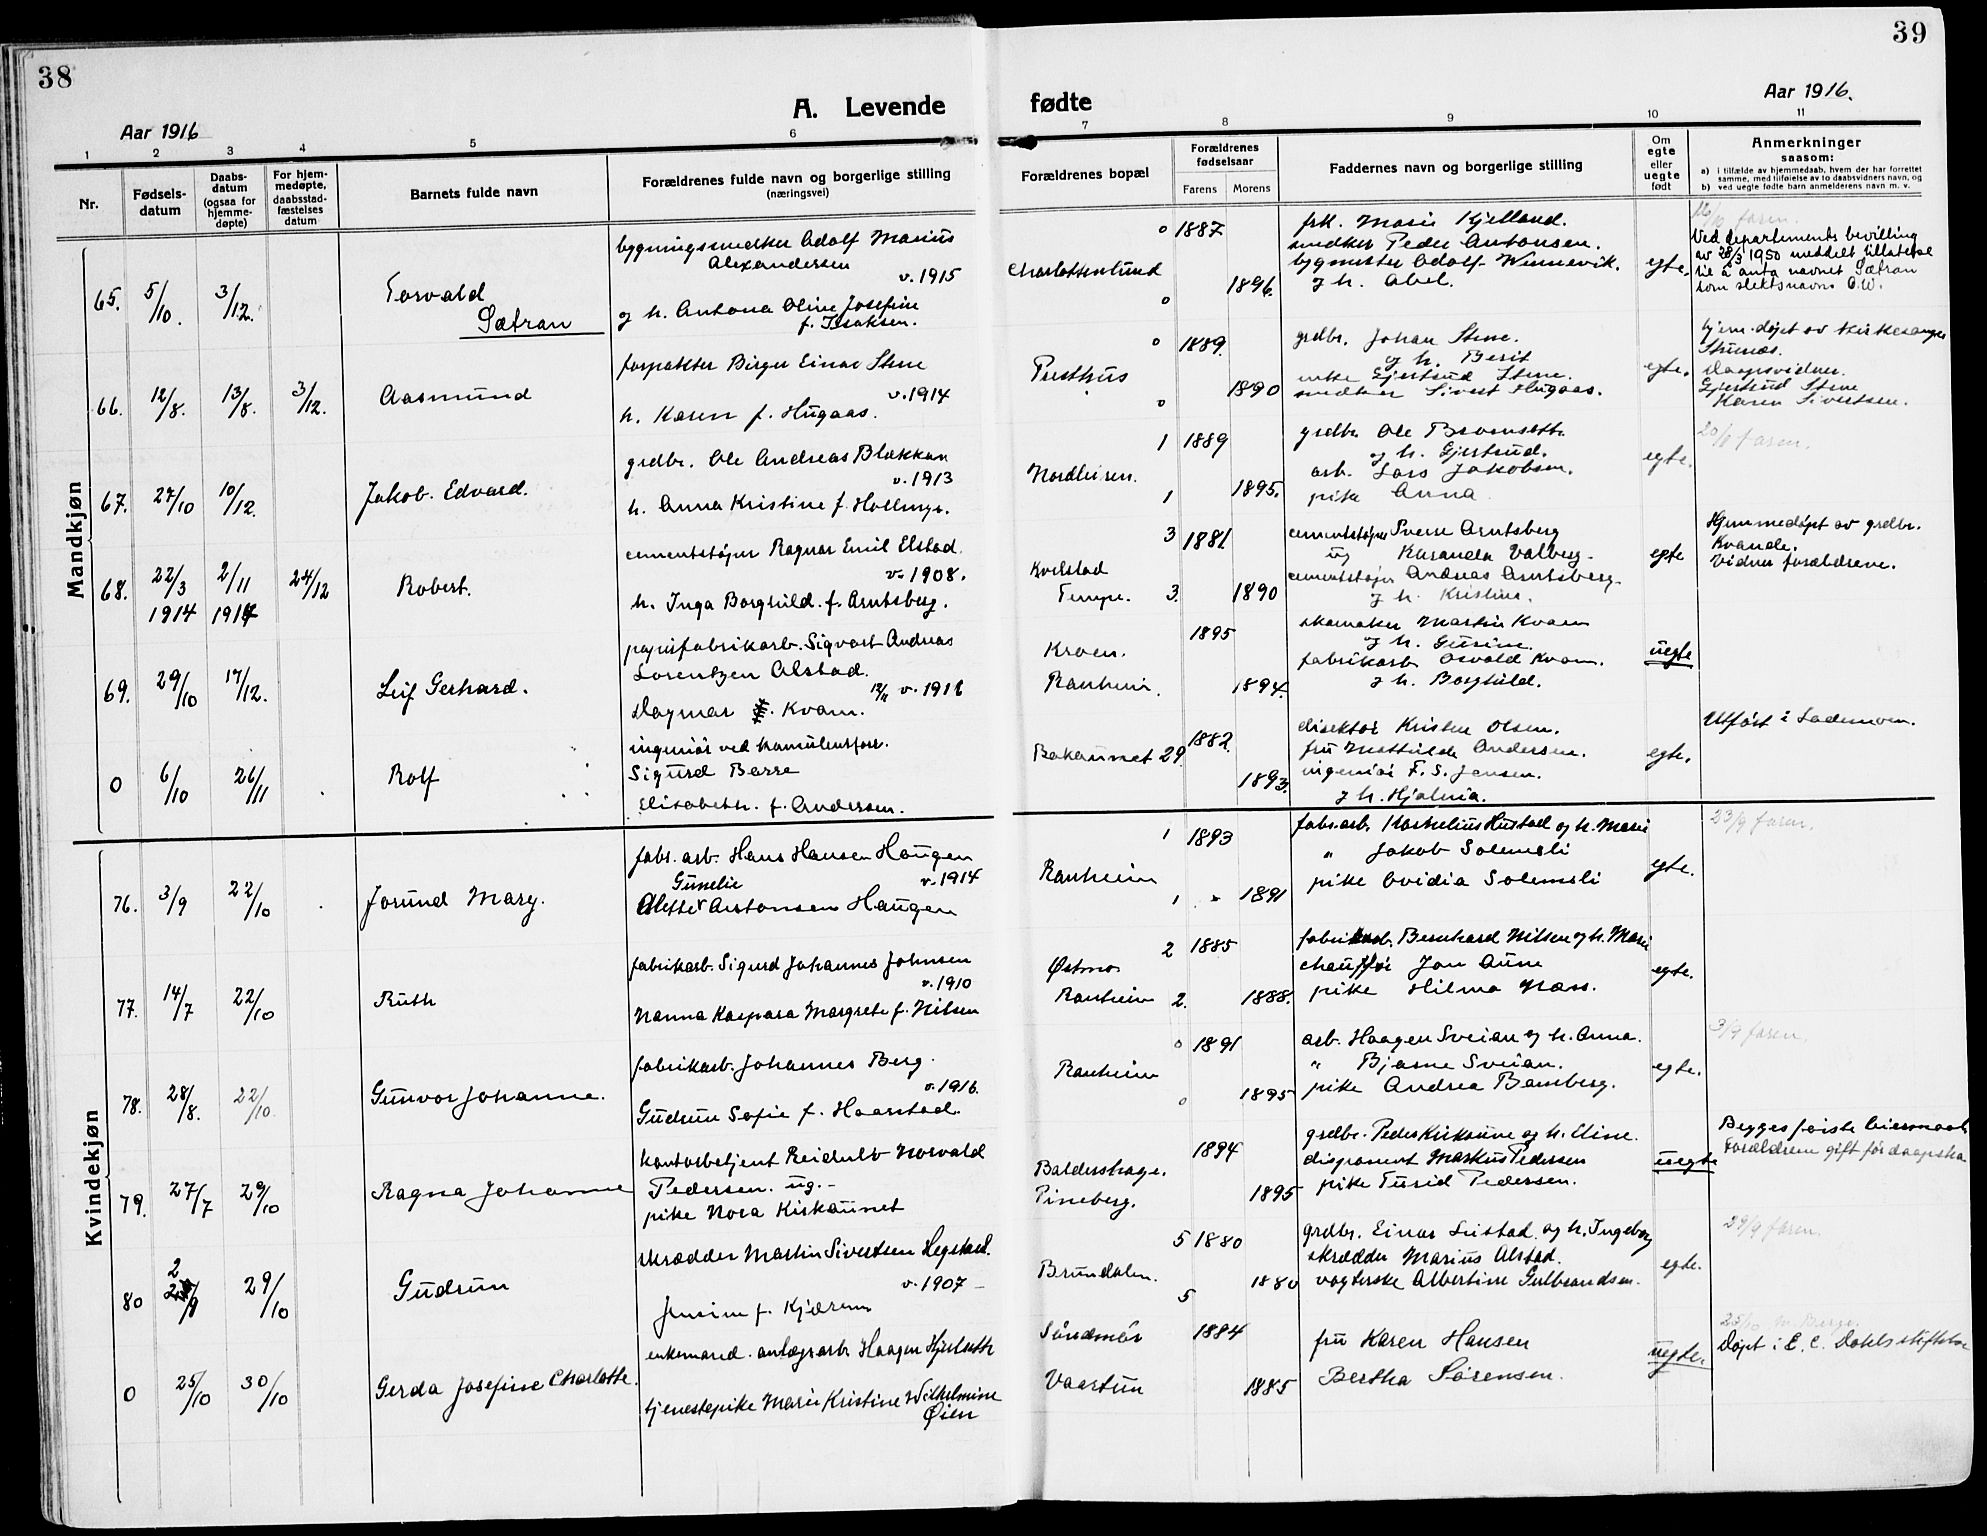 38
39
A. Levende
fødte
Aar 1916
Aar 1916.
1 2 3 4 5 6 7 8 9 10 11
Nr.
Fødsels-
datum
Daabs-
datum
(ogsaa for
hjemme-
døpte)
For hjem-
medøpte,
daabsstad-
fæstelses
datum
Barnets fulde navn
Forældrenes fulde navn og borgerlige stilling
(næringsvei)
Forældrenes bopæl
Forældrenes
fødselsaar
Farens Morens
Faddernes navn og borgerlige stilling
Om
egte
eller
uegte
født
Anmerkninger
saasom:
a) i tilfælde av hjemmedaab, hvem der har forrettet
samme, med tilføielse av to daabsvidners navn, og
b) ved uegte fødte barn anmelderens navn m. v.
Mandkjøn
65. 5/10. 3/12.
Torvald
Sætran
bygningssnedker Adolf Marius
Alexandersen
v. 1915
og h. Antona Oline Josefine
f. Isaksen.
Charlottenlund
0 1887
1896.
0
frk. Marie Kjelland.
snedker Peder Antonsen.
bygmester Adolf Winnevik.
og h. Abel.
egte.
faren.
Ved departements bevilling
av 20/3 1950 meddelt tillatelse
til å anta navnet Sætran
som slektsnavn O.W.
66. 12/8. 13/8. 3/12.
Aasmund
forpakter Birger Einar Stene
v. 1914
h. Karen f. Hugaas.
Presthus
0 1889.
1890
0
grdbr. Johan Stene.
og h. Berit
enke Gjertrud Stene.
snedker Sivert Hugaas.
egte.
hjem-døpt av kirkesanger
Daapsvidner.
Gjertrud Stene
Karen Sivertsen.
67. 27/10 10/12.
Jakob Edvard.
grdbr. Ole Andreas Blekkan
v. 1913
h. Anna Kristine f. Hollmyr.
Nordleiren.
1 1889
1895.
1
grdbr. Ole
og h. Gjertrud.
arb. Lars Jakobsen.
pike Anna
egte.
faren.
68. 22/3 2/11 24/12
1914 1914
Robert.
cementstøper Ragnar Emil Elstad.
v. 1908.
h. Inga Borghild. f. Arntsberg.
Kvelstad
Tempe.
3 1881
1890
3.
cementstøper Sverre Arntsberg
ug Karanda Valberg.
cementstøper Andreas Arntsberg.
og h. Kristine.
egte
Hjemmedøpt av grdbr.
Kvande.
Vidner forældrene.
69. 29/10 17/12.
Leif Gerhard.
papirfabrikarb. Sigvart Andreas
Lorentzen Alstad.
12/11 v. 1916
Dagmar Kvam.
Kroen.
Ranheim.
1895
1894.
skomaker Martin Kvam
og h. Gurine.
fabrikarb Osvald Kvam.
og h. Borghild.
uegte
0 6/10 26/11
Rolf
ingeniør ved
Sigurd Barre
Elisabeth. f. Andersen.
Bakaunet 29.
1882
1893.
direktør Kristen Olsen.
fru Mathilde Andersen.
ingeniør F. S. Jensen.
og h. Hjalmia.
egte.
Utført i Lademoen.
Kvindekjøn
76. 3/9 22/10
Jorund Mary.
fabr. arb. Hans Hansen Haugen
Gunelie
v. 1914
Alette Arntonsen Haugen
Ranheim
1 1893
1 1891
fabr. arb. Kornelius Hustad og h. Marie
" Jakob Solemsli
pike Ovidia Solemsli
egte.
23/9 faren.
77. 14/7 22/10
Ruth
fabrikarb. Sigurd Johannes Johnsen
v. 1910
Nanna Kaspara Margrete f. Nilsen
Østmo
Ranheim
2 1885
2. 1888.
fabrikarb. Bernhard Nilsen og h. Marie
chauffør Jon Aune
pike Hilma Næss.
egte.
78. 28/8. 22/10.
Gunvor Johanne.
fabrikarb. Johannes Berg.
v. 1916.
Gudrun Sofie f. Haarstad.
Ranheim
0 1891
0 1895
arb. Haagen Sveian og h. Anna.
" Bjarne Sveian.
pike Andrea Bamberg.
egte.
3/9 faren.
79. 27/7 29/10
Ragna Johanne
kontorbetjent Reidulv Norvald
Pedersen. ug.-
pike Nora Kirkaunet
Baldershage.
Pineberg.
1894
1895
grdbr. Peder Kirkaune og h. Eline.
disponent Markus Pedersen
pike Turid Pedersen.
uegte
Begges første leiermaal.
Forældrene gift før daapen
80 2 /9 29/10
Gudrun
skrædder Martin Sivertsen Hegstad.
v. 1907
Jensine f. Kjærem
Brundalen.
5 1880
1880
5
grdbr. Einar Leistad og h. Ingeborg
skrædder Marius Alstad.
vogterske Albertine Gulbrandsen.
egte.
29/9 faren.
0 25/10 30/10
Gerda Josefine Charlotte.
enkemand. anlægsarb. Haagen Hjelseth
tjenestepike Marie Kristine Wilhelmine
Øien
Søndmør
Vaartun
1884
1885
fru Karen Hansen
Bertha Sørensen.
uegte.
Døpt i E. C. Dahls stiftelse